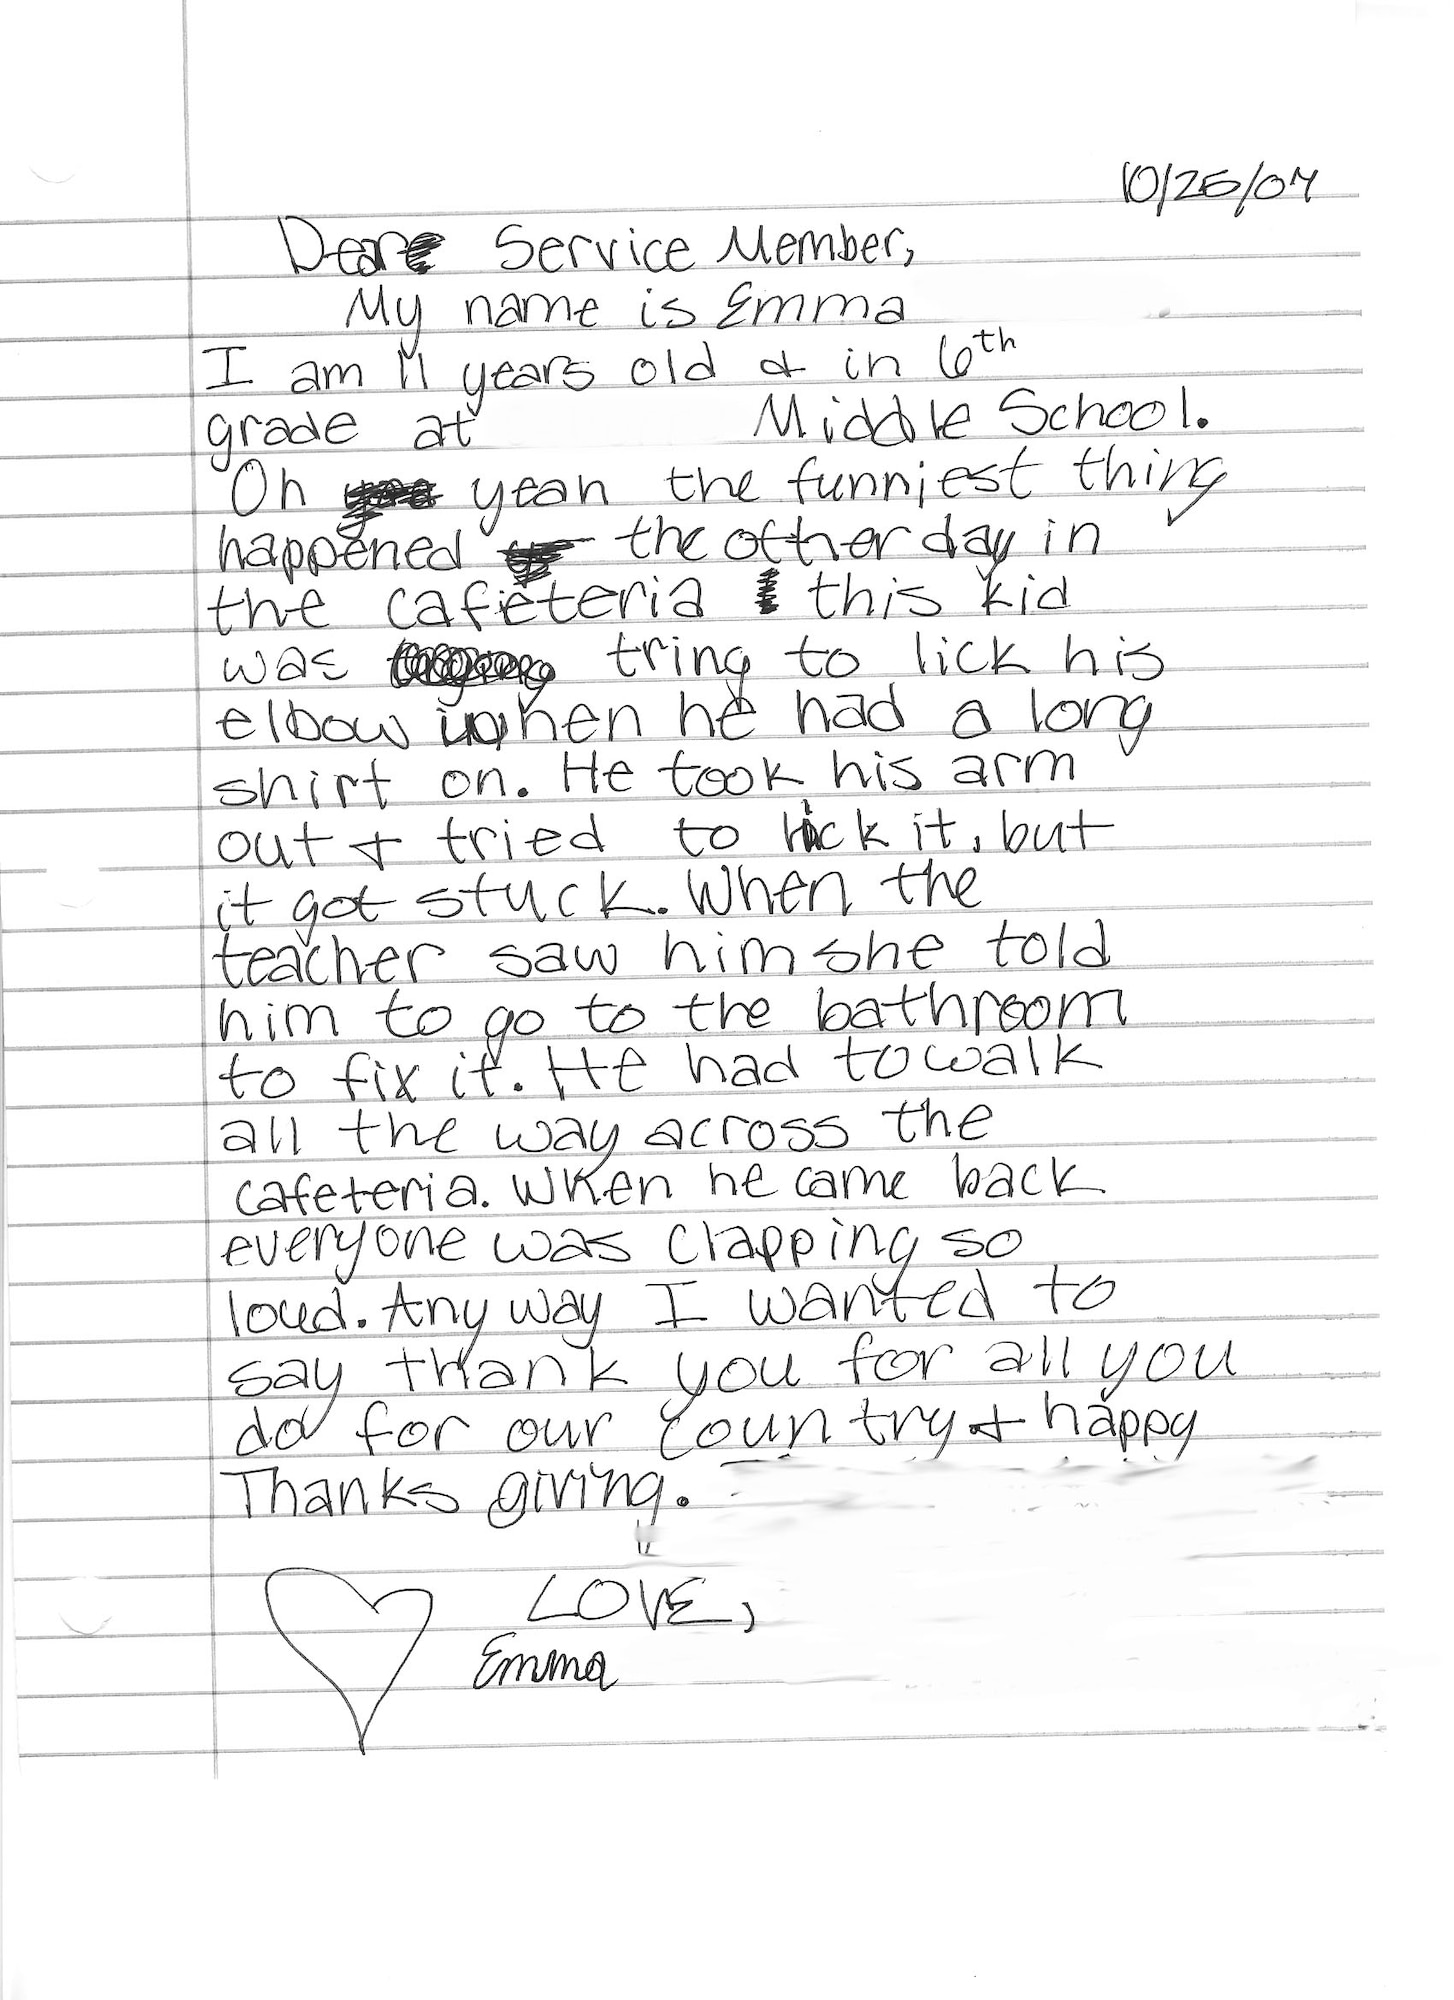 10/25/07
Dear Service Member,
My name is Emma
I am 11 years old & in 6th
grade at Middle School.
Oh yeah the funniest thing
happened the other day in
the cafeteria this kid
was tring to lick his
elbow when he had a long
shirt on. He took his arm
out & tried to lick it, but
it got stuck. When the
teacher saw him she told
him to go to the bathroom
to fix it. He had to walk
all the way across the
cafeteria. When he came back
everyone was clapping so
loud. Any way I wanted to
say thank you for all you
do for our country & happy
Thanks giving.
LOVE,
Emma